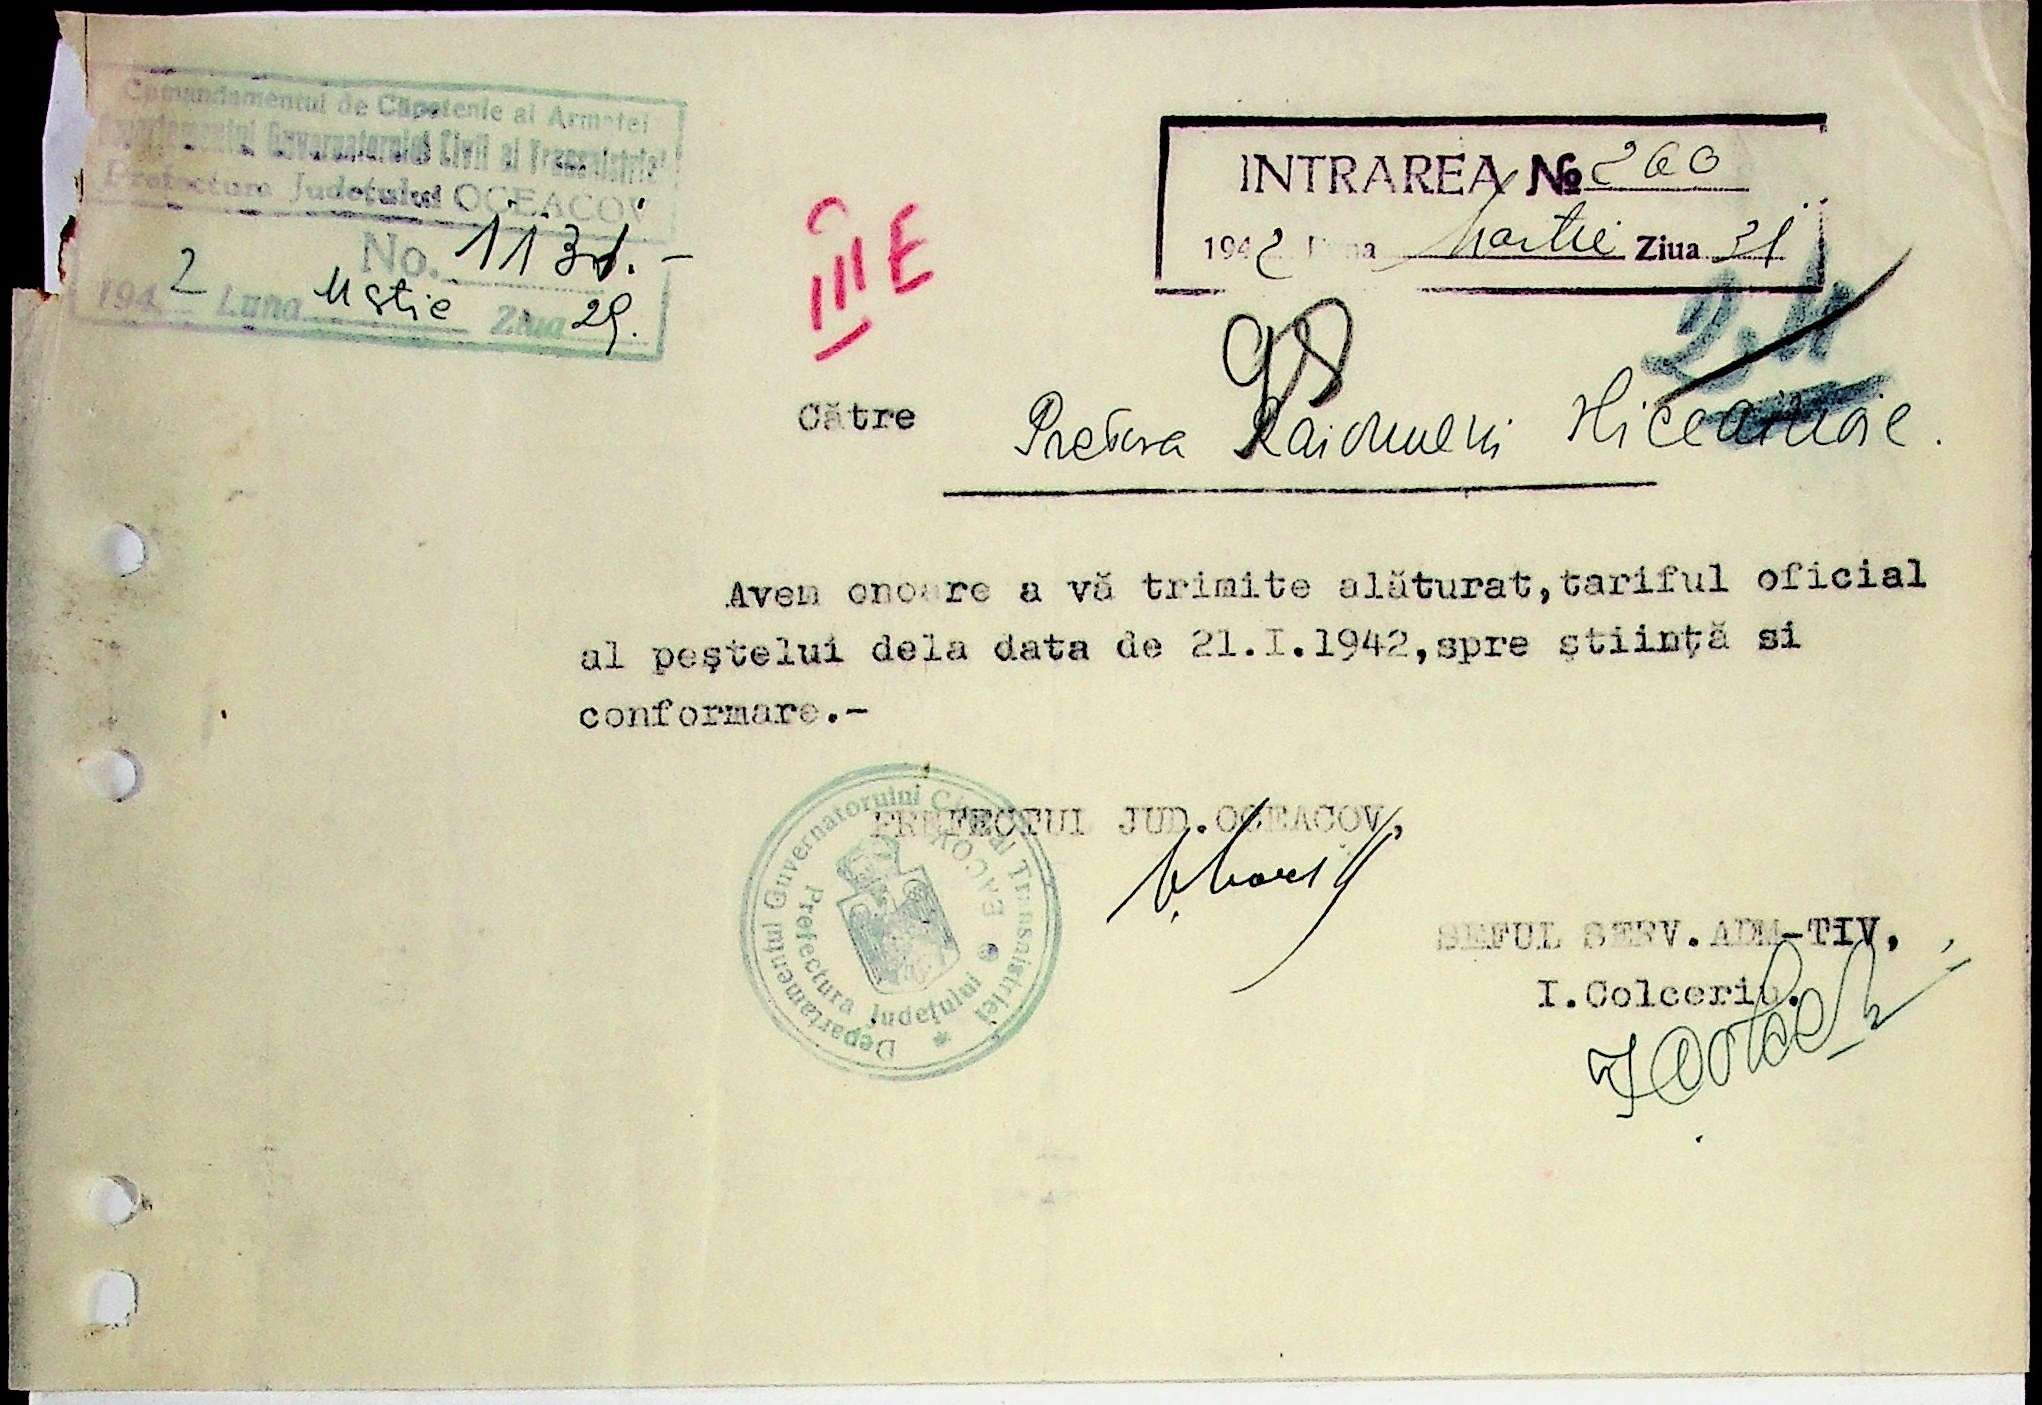 Comandamentul de Căpetenie al Armatei
Departamentul Guvernatorului Civil al Transnistriei
Prefectura Județului OCEACOV
No. 1131.-
1942 Luna Mstie Ziua 29.
III E
INTRAREA № 260
1942 Luna Martie Ziua 31
Către Pretura Raionului
Avem onoare a vă trimite alăturat,tariful oficial
al peştelui dela data de 21.I.1942,spre ştiinţă si
conformare.-
PREFECTUL JUD.OCEACOV,
Departamentul Guvernatorului Civil al Transnistriei
Prefectura Judeţului OCEACOV
SEFUL SERV.ADM-TIV,
I.Colceriu.